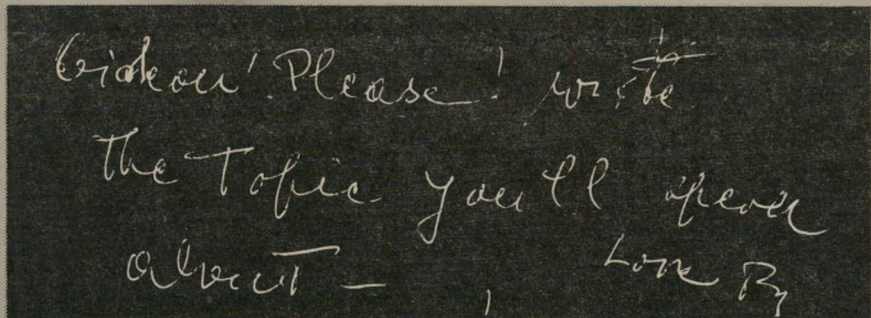 Gideon! Please! write
the Topic you'll speak
about - Love